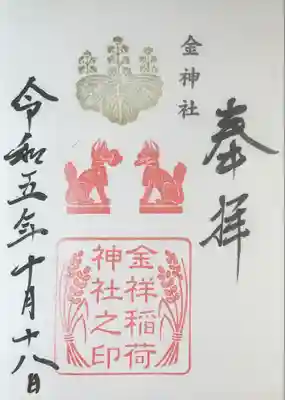 奉拝
金神社
金祥稲荷
神社之印
令和五年十月十八日